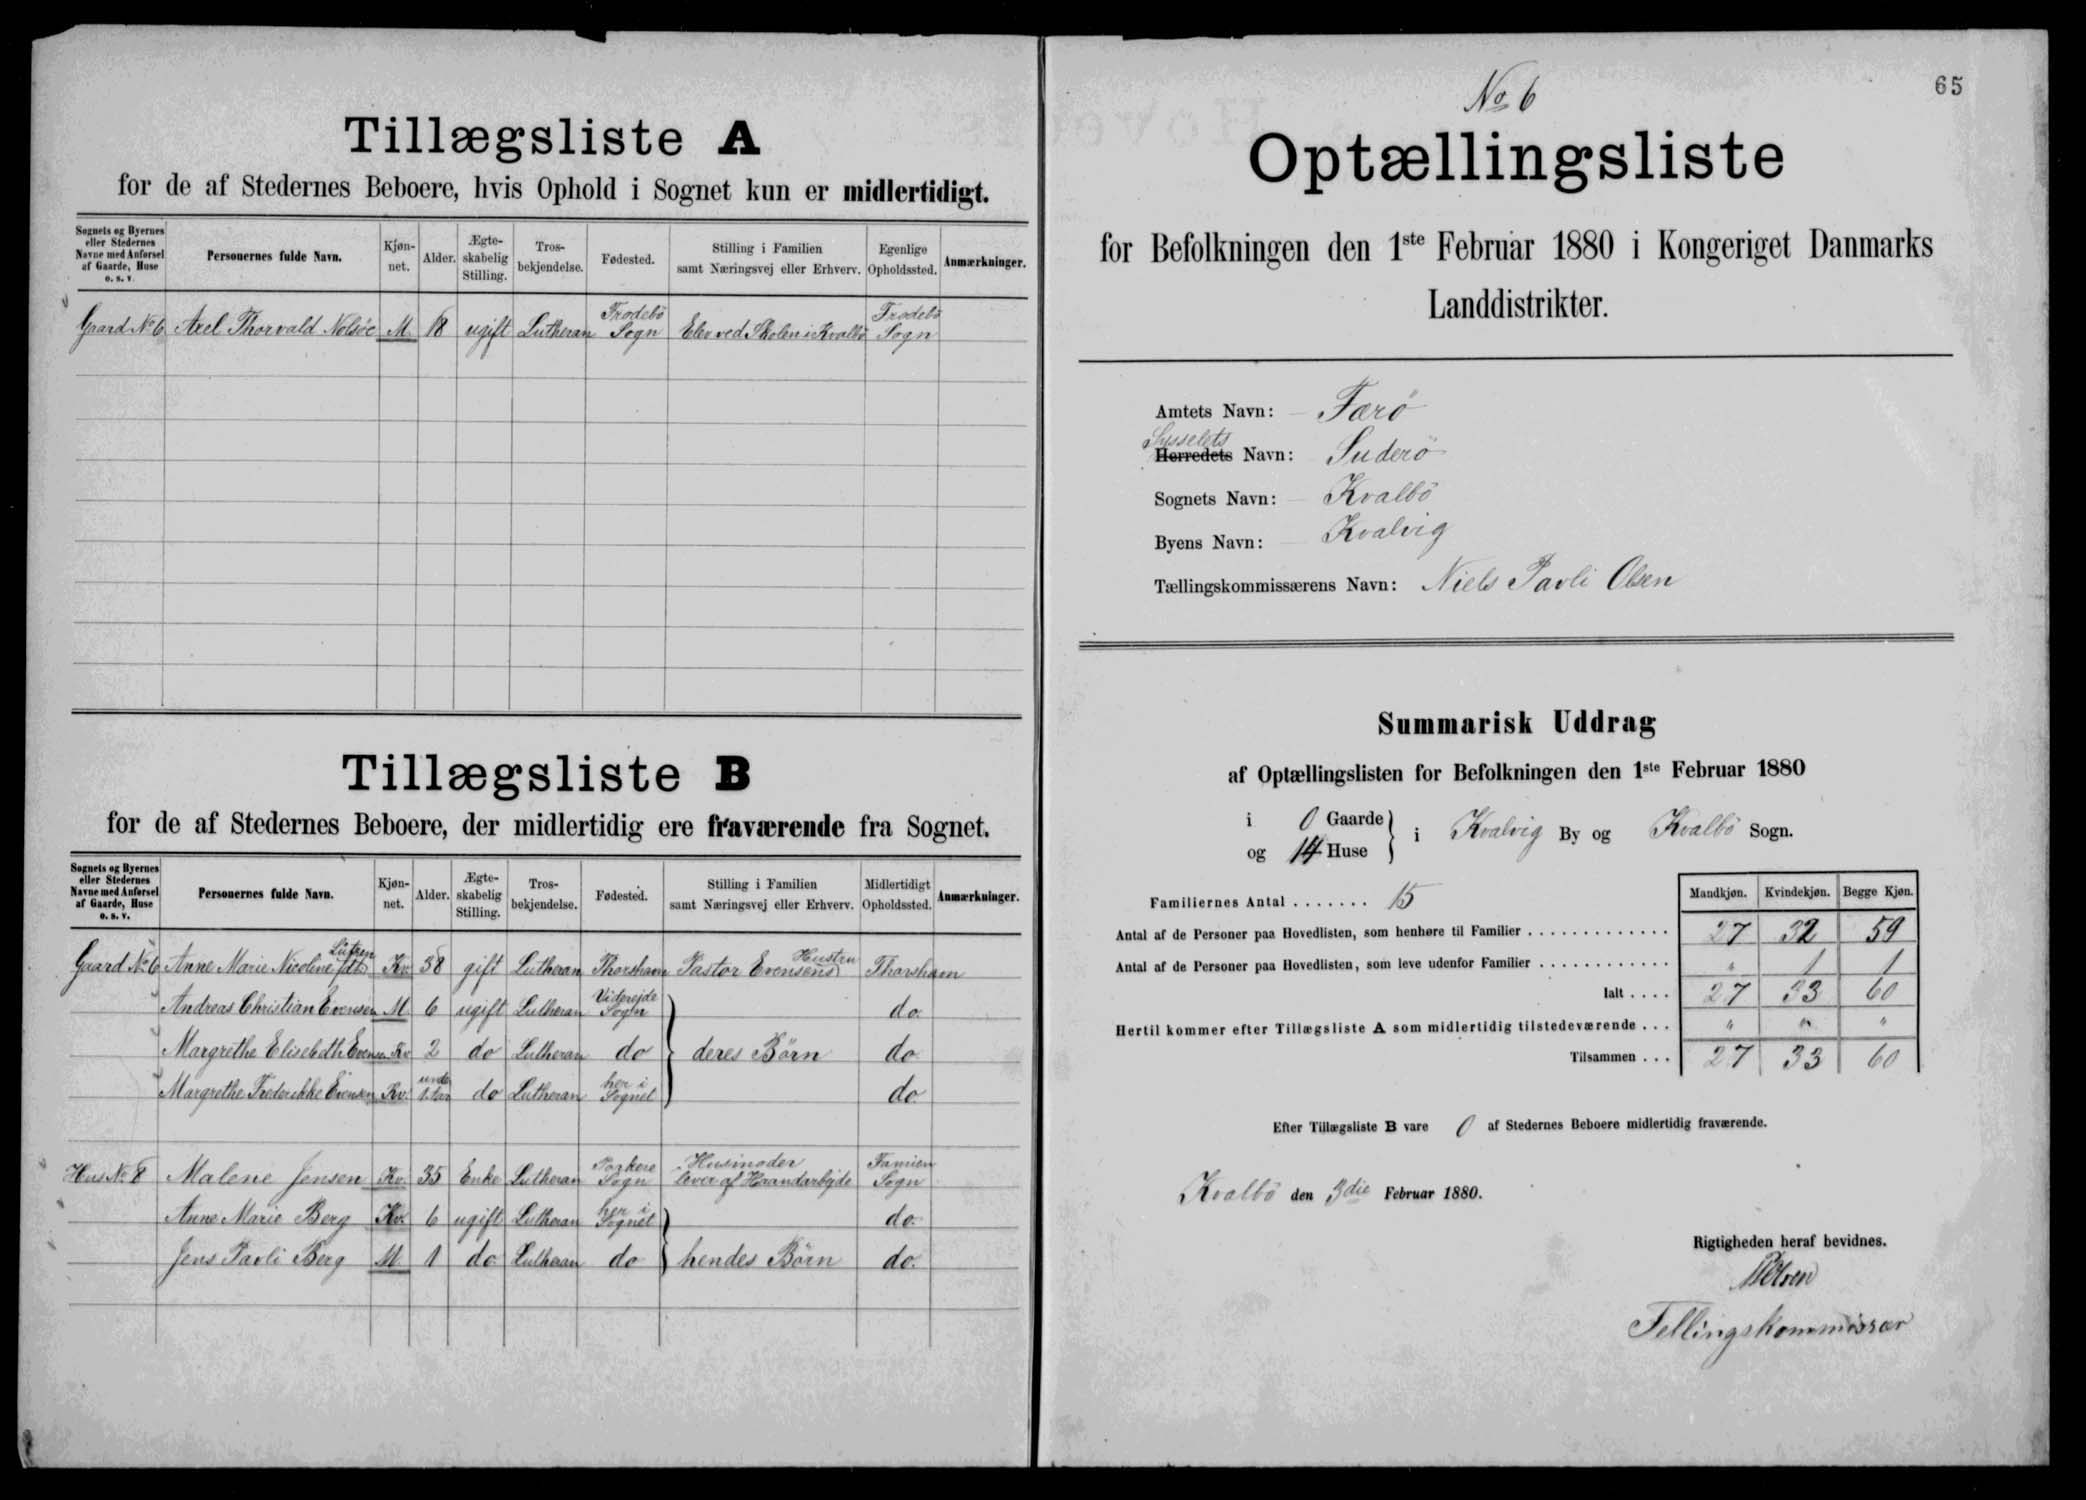 Tillægsliste A
for de af Stedernes Beboere, hvis Ophold i Sognet kun er midlertidigt.
Sognets og Byernes eller Stedernes Navne med Anførsel af Gaarde, Huse o. s. v. Personernes fulde Navn. Kjøn- net. Alder. Ægte- skabelig Stilling. Tros- bekjendelse. Fødested. Stilling i Familien samt Næringsvej eller Erhverv. Egenlige Opholdssted. Anmærkninger.
Gaard No 6 Axel Thorvald Nolsöe M 18 ugift Lutheran Frodebö Sogn Elev ved Skolen i Kvalbö Frodebö Sogn
Tillægsliste B
for de af Stedernes Beboere, der midlertidig ere fraværende fra Sognet.
Sognets og Byernes eller Stedernes Navne med Anførsel af Gaarde, Huse o. s. v. Personernes fulde Navn. Kjøn- net. Alder. Ægte- skabelig Stilling. Tros- bekjendelse. Fødested. Stilling i Familien samt Næringsvej eller Erhverv. Midlertidigt Opholdssted. Anmærkninger.
Gaard No 6 Anne Marie Nicoline Lützen Kv. 38 gift Lutheran Thorshavn Pastor Evensens Hustru Thorshavn
Andreas Christian Evensen M 6 ugift Lutheran Viderejde Sogn do.
Margrethe Elisebeth Evensen Kv 2 do Lutheran do deres Börn do.
Margrethe Frederikke Evensen Kv. under 1 Aar do Lutheran her i Sognet do.
Hus No 8 Malene Jensen Kv. 35 Enke Lutheran Porkere Sogn Husmoder lever af Haandarbejde Famien Sogn
Anne Marie Berg Kv. 6 ugift Lutheran her i Sognet do.
Jens Pavli Berg M 1 do Lutheran do hendes Börn do.
65
No 6
Optællingsliste
for Befolkningen den 1ste Februar 1880 i Kongeriget Danmarks
Landdistrikter.
Amtets Navn: Færö
Sysselets
Herredets Navn: Suderö
Sognets Navn: Kvalbö
Byens Navn: Kvalvig
Tællingskommissærens Navn: Niels Pavli Olsen
Summarisk Uddrag
af Optællingslisten for Befolkningen den 1ste Februar 1880
i 0 Gaarde
og 14 Huse } i Kvalvig By og Kvalbö Sogn.
Mandkjøn. Kvindekjøn. Begge Kjøn.
Familiernes Antal . . . . . . . 15
Antal af de Personer paa Hovedlisten, som henhøre til Familier . . . . . . . . . . . . . 27 32 59
Antal af de Personer paa Hovedlisten, som leve udenfor Familier . . . . . . . . . . . . " 1 1
Ialt . . . . 27 33 60
Hertil kommer efter Tillægsliste A som midlertidig tilstedeværende . . . " " "
Tilsammen . . . 27 33 60
Efter Tillægsliste B vare 0 af Stedernes Beboere midlertidig fraværende.
Kvalbö den 3die Februar 1880.
Rigtigheden heraf bevidnes.
Tellingskommissær